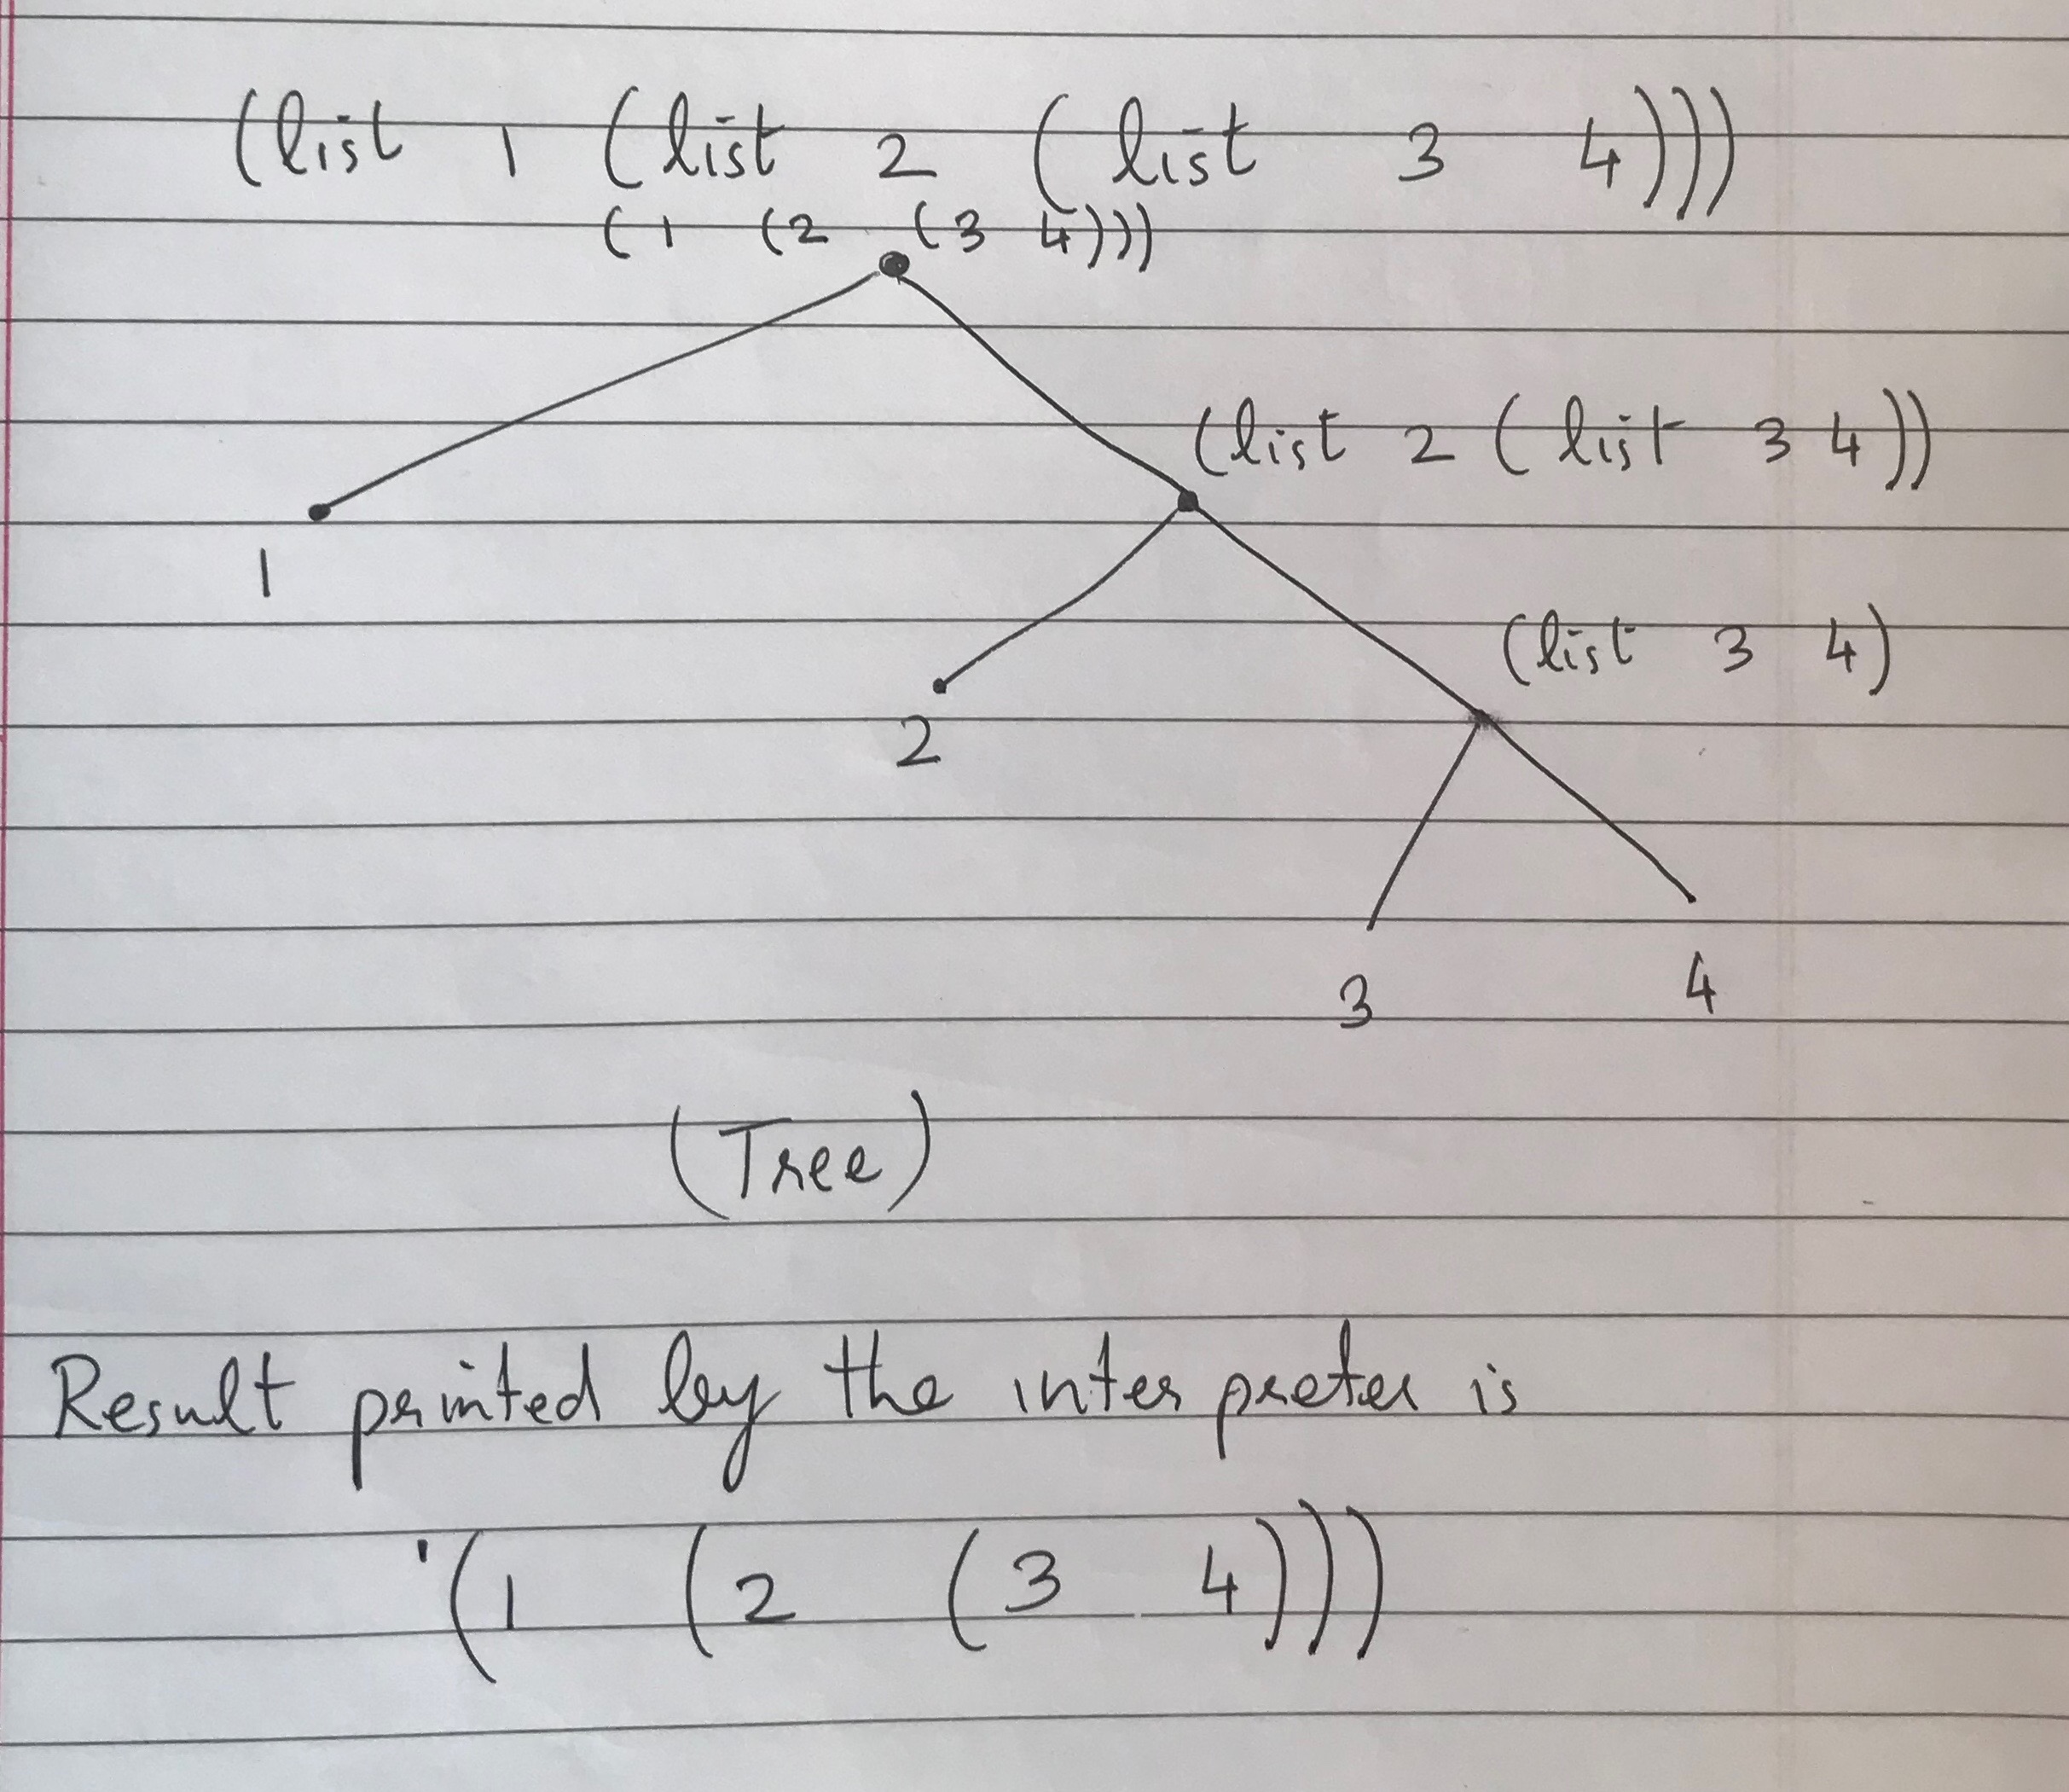 (list 1 (list 2 (list 3 4)))
(1 (2 (3 4)))
(list 2 (list 3 4))
1
(list 3 4)
2
3 4
(Tree)
Result printed by the interpreter is
'(1 (2 (3 4)))